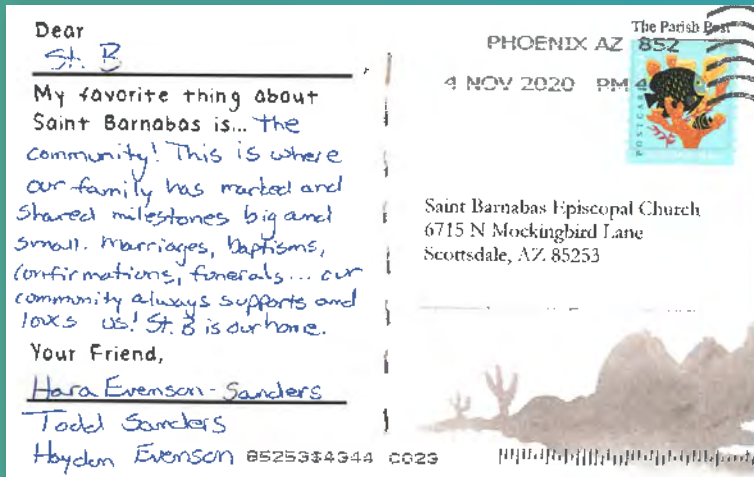 Dear
St. B ,
My favorite thing about
Saint Barnabas is... the
community! This is where
our family has marked and
shared milestones big and
small. Marriages, baptisms,
confirmations, funerals... our
community always supports and
loves us! St. B is our home.
Your Friend,
Hara Evenson-Sanders
Todd Sanders
Hayden Evenson
85253$4344 C023
The Parish Post
PHOENIX AZ 852
4 NOV 2020 PM 4
POSTCARD
Saint Barnabas Episcopal Church
6715 N Mockingbird Lane
Scottsdale, AZ 85253